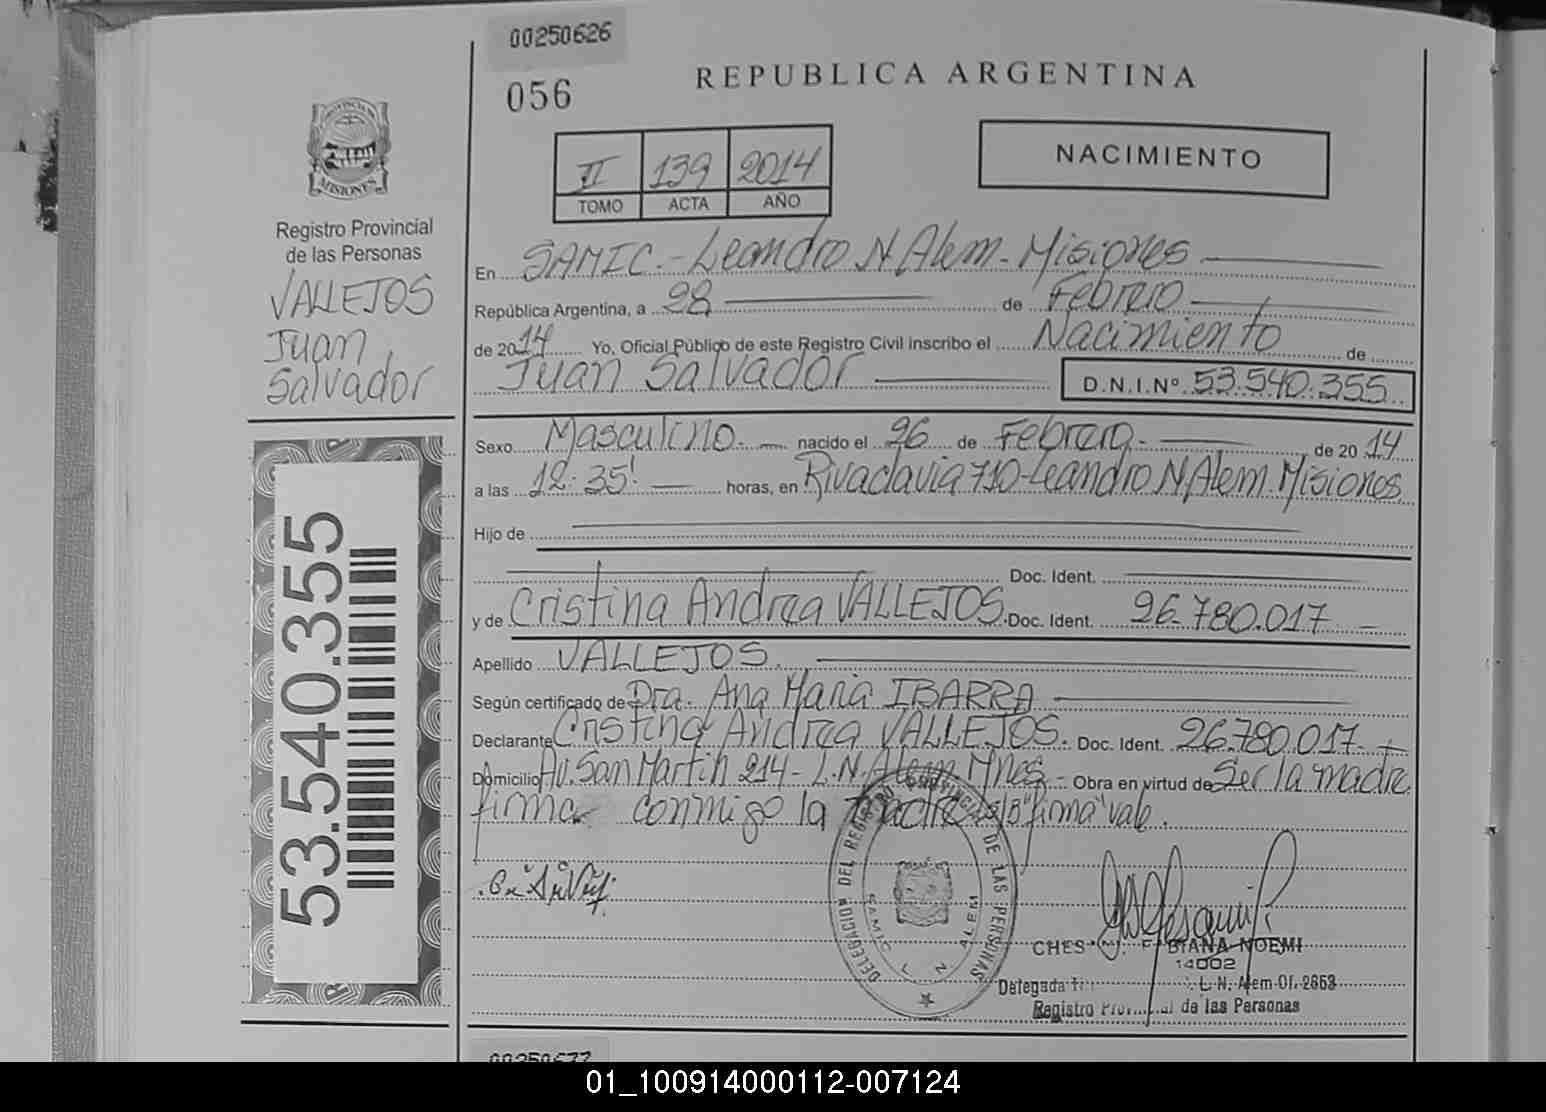 00250626
056
REPUBLICA ARGENTINA
II 139 2014
TOMO ACTA AÑO
NACIMIENTO
PROVINCIA
MISIONES
Registro Provincial
de las Personas
VALLEJOS
Juan
Salvador
53.540.355
En SAMIC.- Leandro N Alem - Misiones
República Argentina, a 28 de Febrero
de 2014 Yo, Oficial Público de este Registro Civil inscribo el Nacimiento de
Juan Salvador D.N.I.Nº 53.540.355
Sexo Masculino. nacido el 26 de Febrero. de 2014
a las 12:35' horas, en Rivadavia 710-Leandro N Alem. Misiones
Hijo de
Doc. Ident.
y de Cristina Andrea VALLEJOS. Doc. Ident. 26.780.017
Apellido VALLEJOS.
Según certificado de Dra. Ana Maria IBARRA
Declarante Cristina Andrea VALLEJOS. Doc. Ident. 26.780.017
Domicilio Av. San Martin 214 - L.N. Alem Mnes - Obra en virtud de Ser la madre
firma conmigo la madre "firma" vale.
DELEGACION DEL REGISTRO PROVINCIAL DE LAS PERSONAS
SAMIC L N ALEM
NOEMI
14002
Delegada L. N. Alem Of. 2653
Registro de las Personas
01_100914000112-007124